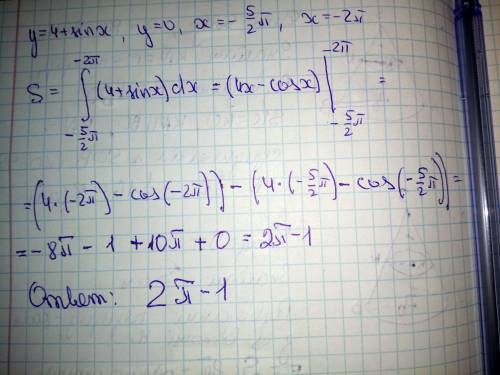 y=4+sinx, y=0, x=-5/2π, x=-2π
S = ∫_{-5/2π}^{-2π} (4+sinx)dx = (4x-cosx)|_{-5/2π}^{-2π} =
=(4·(-2π)-cos(-2π))-(4·(-5/2π)-cos(-5/2π))=
=-8π-1+10π+0=2π-1
Ответ: 2π-1